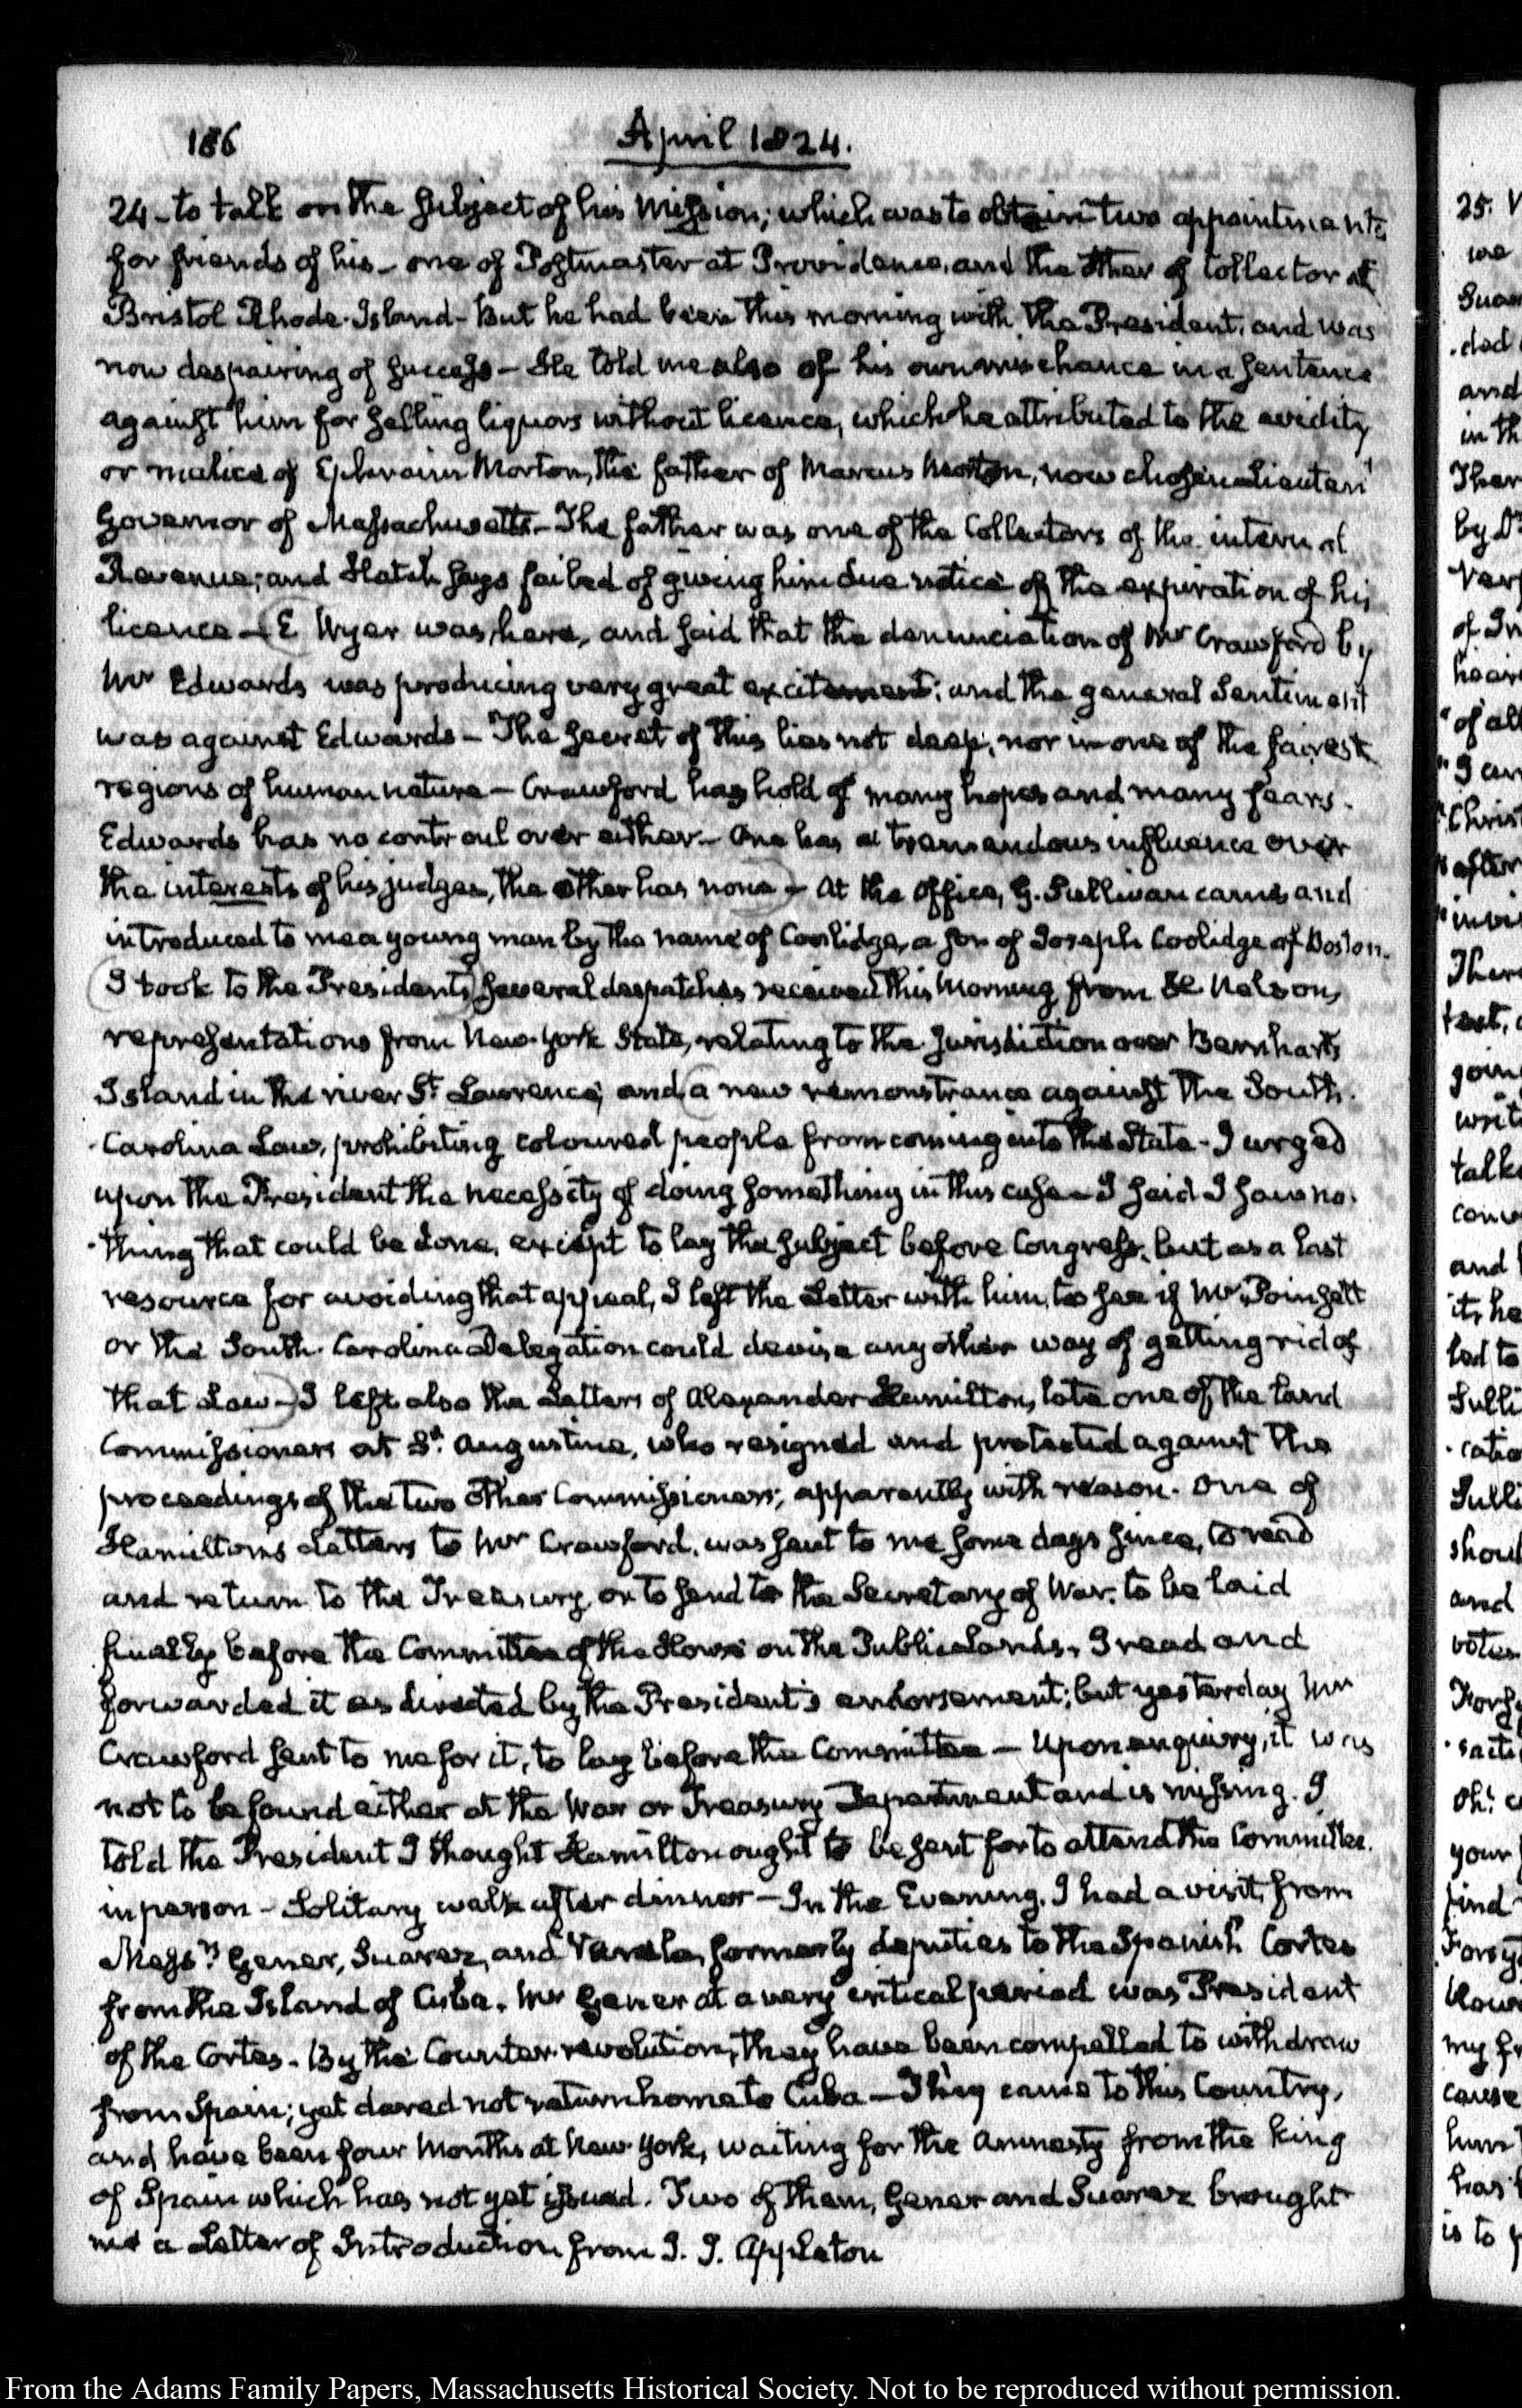 186 April 1824.
24 - to talk on the subject of his Mission; which was to obtain two appointments
for friends of his - one of Postmaster at Providence, and the other of Collector at
Bristol Rhode-Island - But he had been this morning with the President, and was
now despairing of success - He told me also of his own mischance in a sentence
against him for selling liquors without licence, which he attributed to the avidity
or malice of Ephraim Morton, the father of Marcus Morton, now chosen Lieutent
Governor of Massachusetts - The father was one of the Collectors of the internal
Revenue; and Hatch says failed of giving him due notice of the expiration of his
licence - (E Wyer was here, and said that the denunciation of Mr Crawford by
Mr Edwards was producing very great excitement; and the general sentiment
was against Edwards - The secret of this lies not deep, nor in one of the fairest
regions of human nature - Crawford has hold of many hopes and many fears.
Edwards has no controul over either - One has a tremendous influence over
the interests of his judges, the other has none) - At the Office, G. Sullivan came and
introduced to me a young man by the name of Coolidge, a son of Joseph Coolidge of Boston.
(I took to the Presidents) several despatches received this Morning from H. Nelson,
representations from New-York State, relating to the Jurisdiction over Barnharts
Island in the river St Lawrence; and (a new remonstrance against the South-
-Carolina Law, prohibiting coloured people from coming into the State - I urged
upon the President the necessity of doing something in this case - I said I saw no-
-thing that could be done, except to lay the subject before Congress, but as a last
resource for avoiding that appeal, I left the Letter with him, to see if Mr Poinsett
or the South-Carolina Delegation could devise any other way of getting rid of
that Law -) I left also the Letters of Alexander Hamilton, late one of the Land
Commissioners at St Augustine, who resigned and protested against the
proceedings of the two other Commissioners; apparently with reason. One of
Hamilton's Letters to Mr Crawford, was sent to me some days since, to read
and return to the Treasury, or to send to the Secretary of War, to be laid
finally before the Committee of the House on the Public Lands. I read and
forwarded it as directed by the President's endorsement; but yesterday Mr
Crawford sent to me for it, to lay before the Committee - Upon enquiry, it was
not to be found either at the War or Treasury Department and is missing. I
told the President I thought Hamilton ought to be sent for to attend the Committee
in person - Solitary walk after dinner - In the Evening, I had a visit from
Messrs Gener, Suarez, and Varela, formerly deputies to the Spanish Cortes
from the Island of Cuba. Mr Gener at a very critical period was President
of the Cortes. By the Counter-revolution, they have been compelled to withdraw
from Spain; yet dared not return home to Cuba - They came to this Country,
and have been four Months at New-York, waiting for the Amnesty from the King
of Spain which has not yet issued. Two of them, Gener and Suarez brought
me a Letter of Introduction from J. J. Appleton
From the Adams Family Papers, Massachusetts Historical Society. Not to be reproduced without permission.